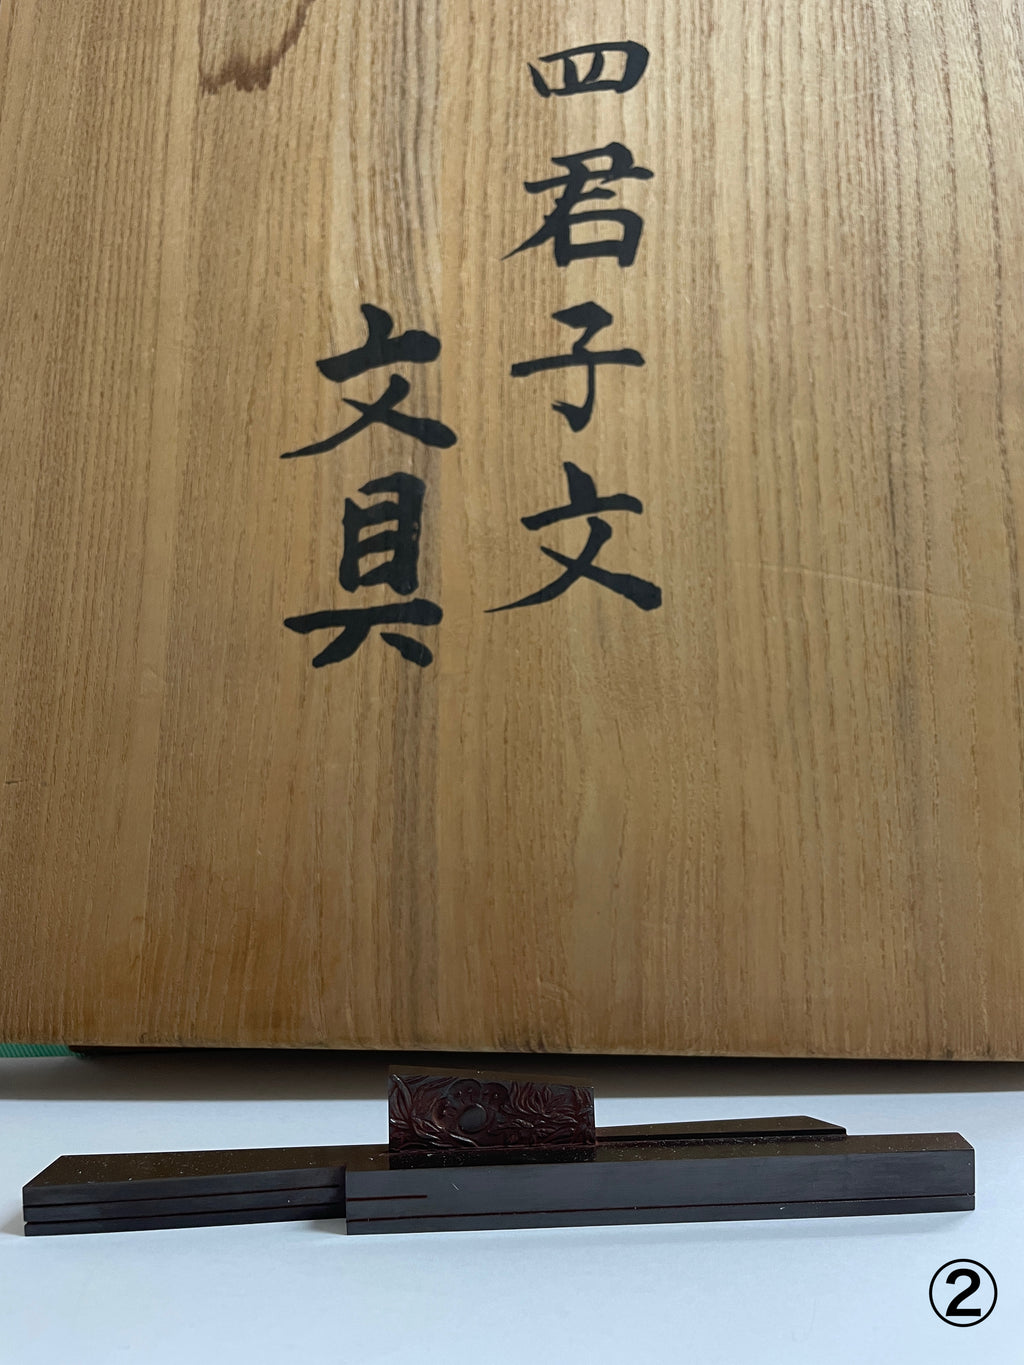 四君子文
文具
②